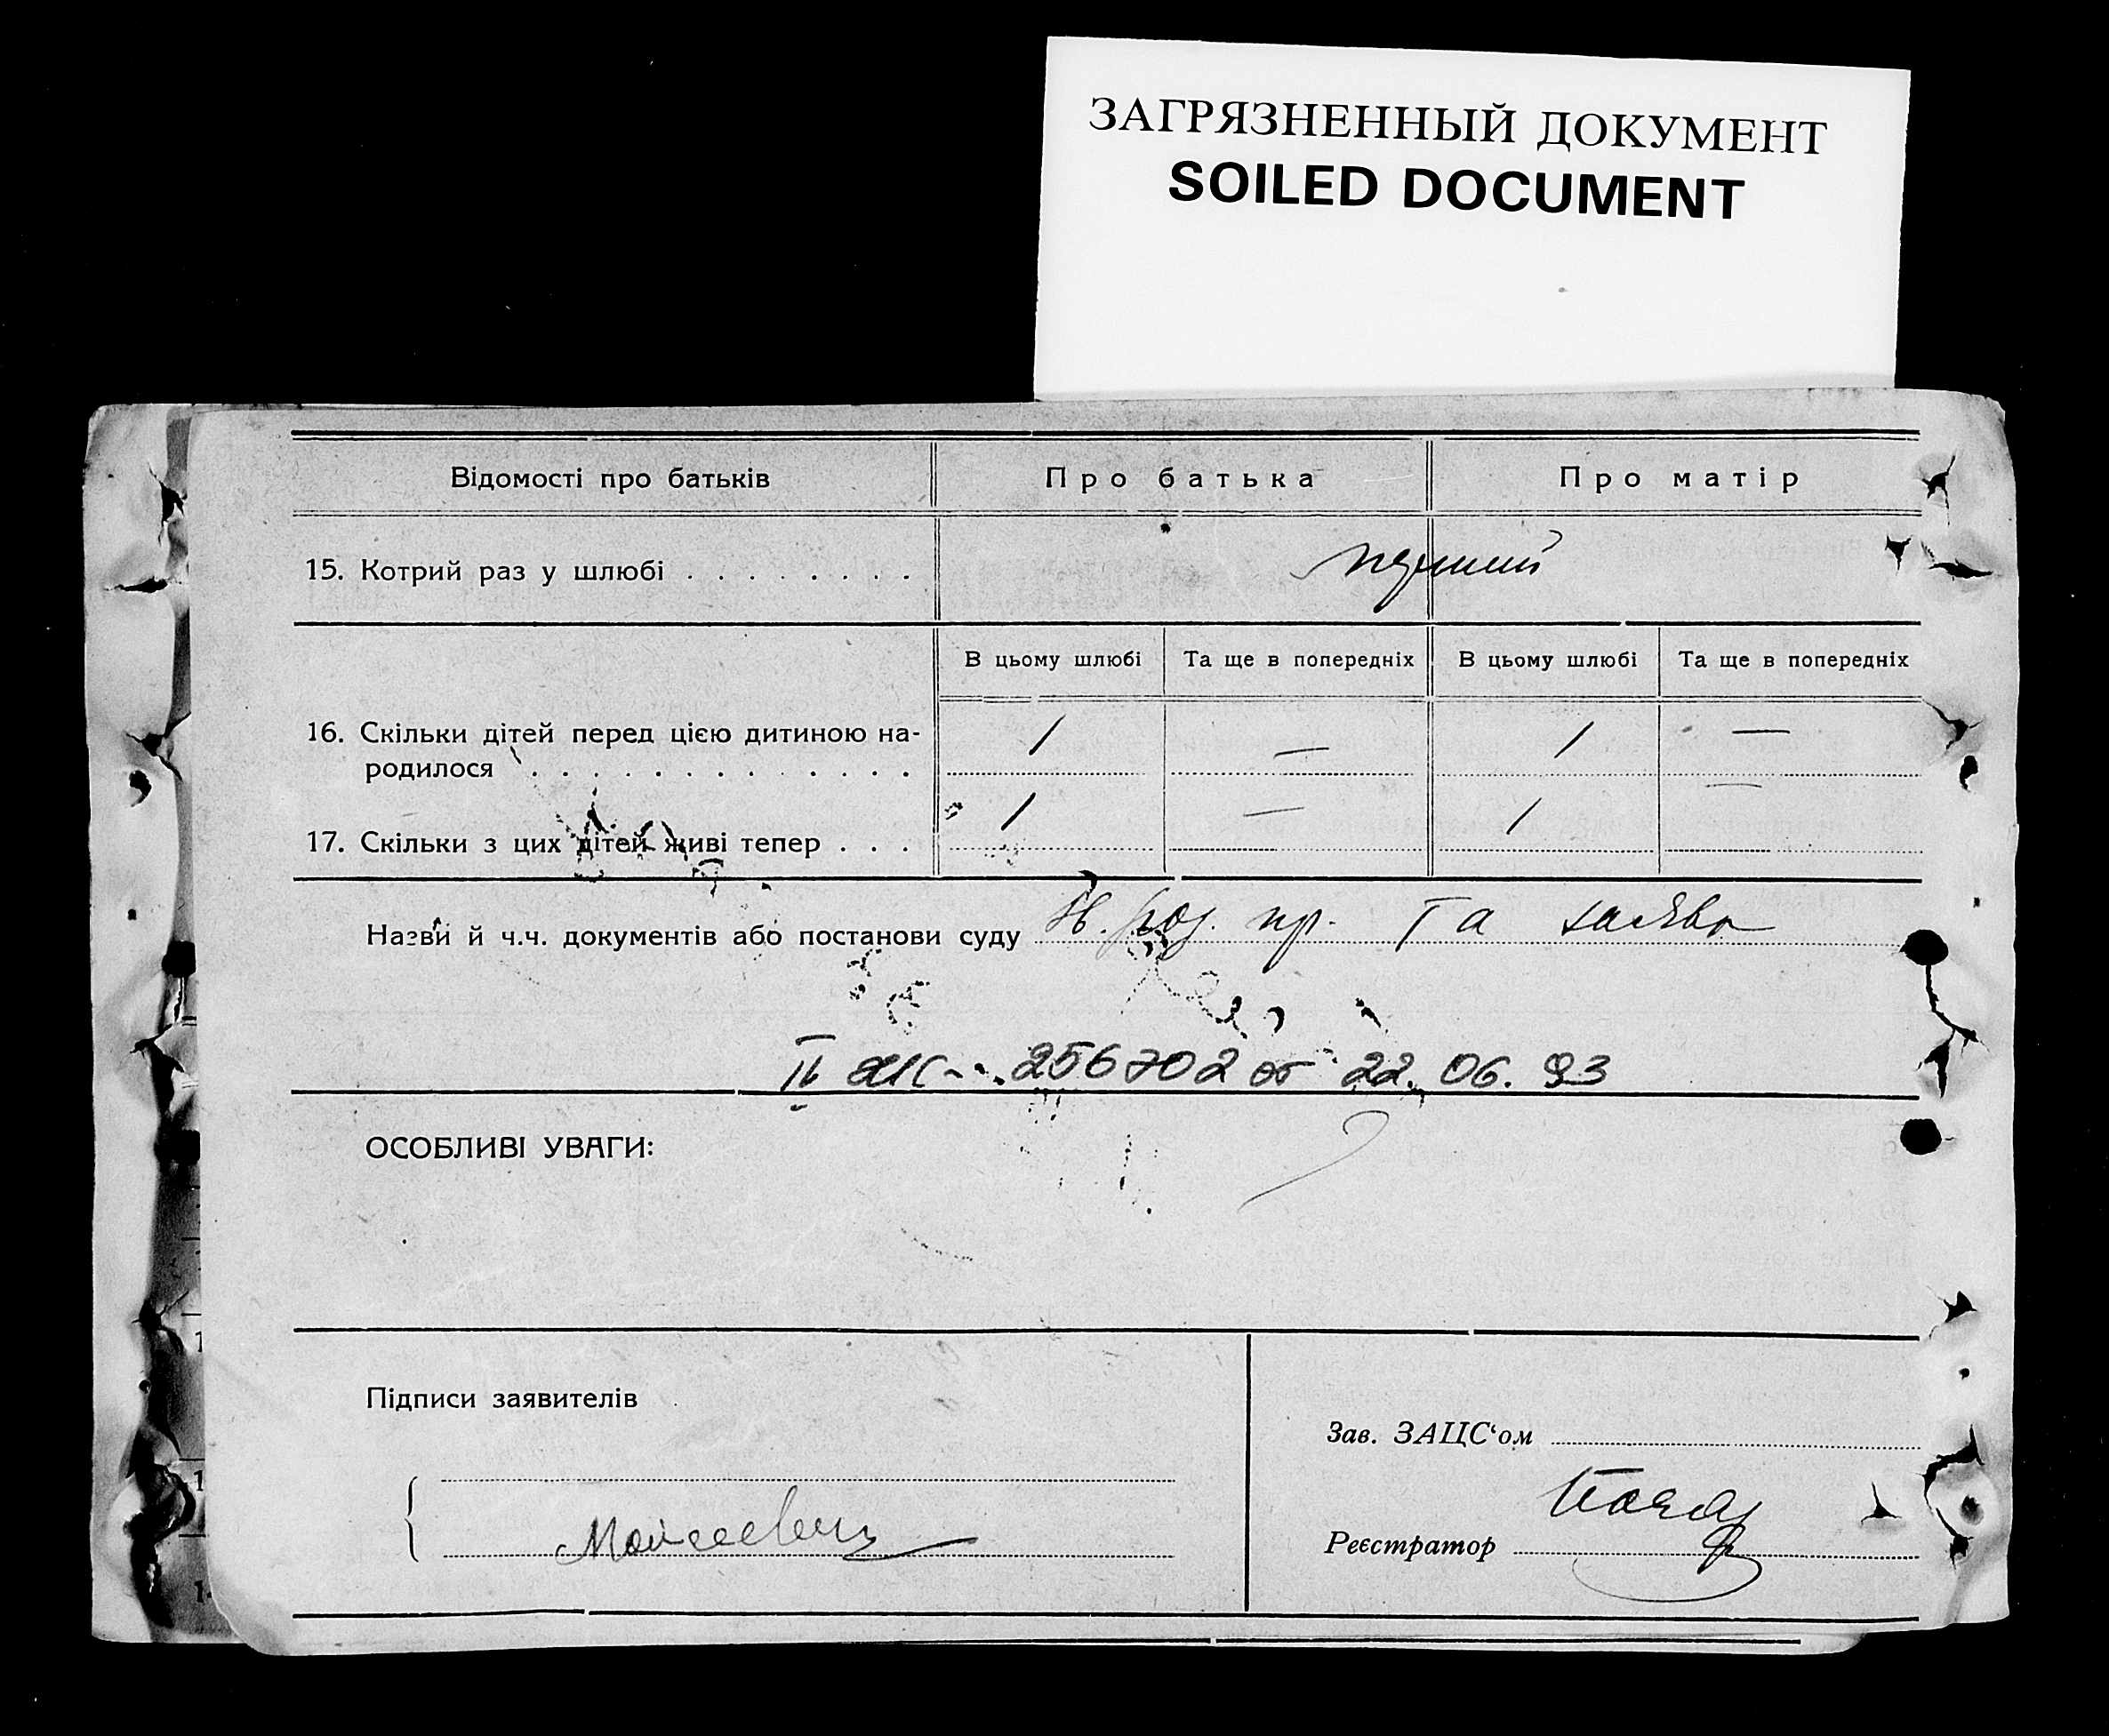 ЗАГРЯЗНЕННЫЙ ДОКУМЕНТ
SOILED DOCUMENT
Відомості про батьків
Про батька
Про матір
15. Котрий раз у шлюбі . . . . . . . .
В цьому шлюбі
Та ще в попередніх
В цьому шлюбі
Та ще в попередніх
16. Скільки дітей перед цією дитиною на-
родилося . . . . . . . . . . . . .
1 — 1 —
17. Скільки з цих дітей живі тепер . . .
1 — 1 —
Назви й ч.ч. документів або постанови суду пр. та
256702 от 22.06.93
ОСОБЛИВІ УВАГИ:
Підписи заявителів
Зав. ЗАЦС‘ом
Реєстратор